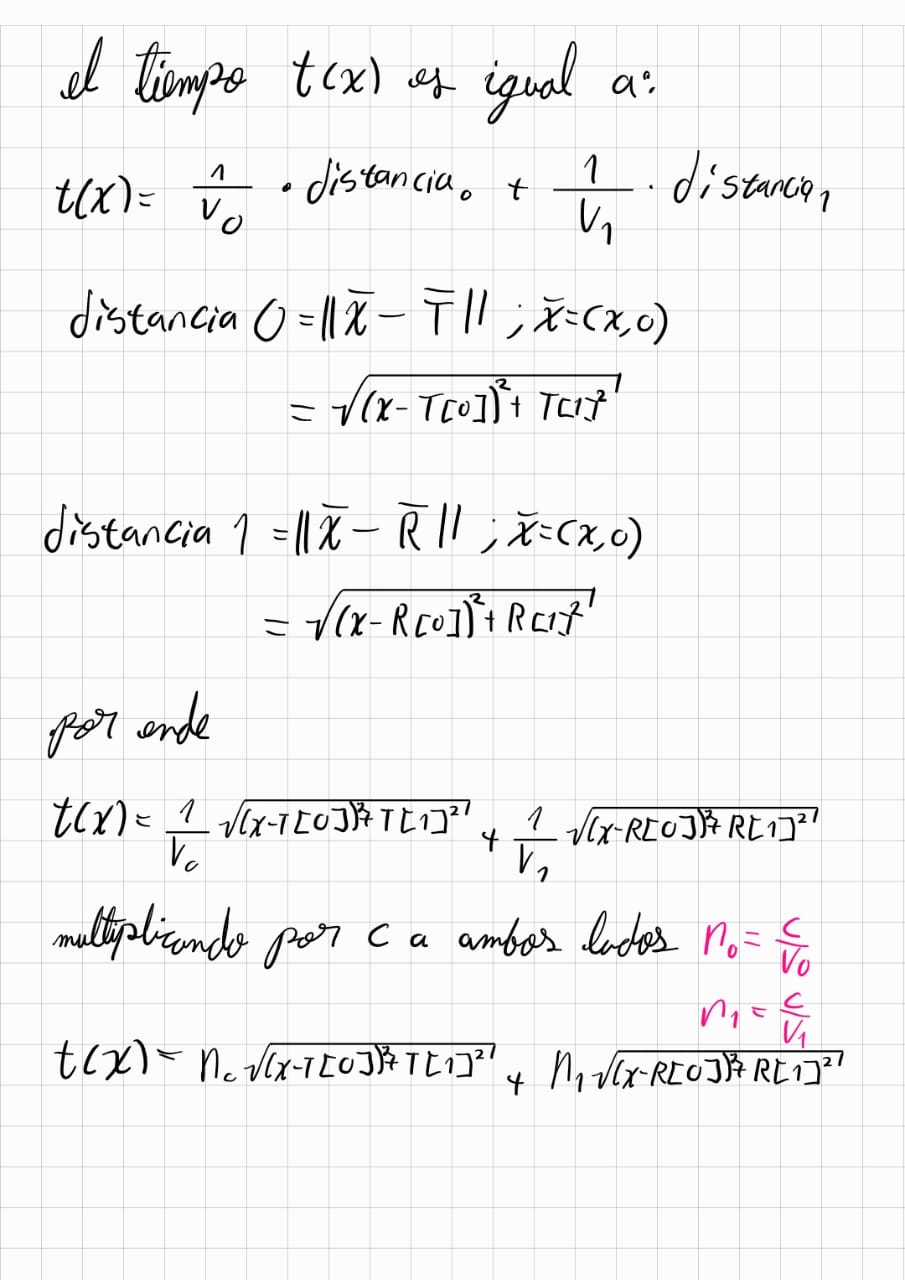 el tiempo t(x) es igual a:
t(x) = 1/V₀ · distancia₀ + 1/V₁ · distancia₁
distancia 0 = ||x̄ - T̄|| ; x̄ = (x,0)
= √((x - T[0])² + T[1]²)
distancia 1 = ||x̄ - R̄|| ; x̄ = (x,0)
= √((x - R[0])² + R[1]²)
por ende
t(x) = 1/V₀ √((x-T[0])² + T[1]²) + 1/V₁ √((x-R[0])² + R[1]²)
multiplicando por c a ambos lados n₀ = c/V₀
n₁ = c/V₁
t(x) = n₀ √((x-T[0])² + T[1]²) + n₁ √((x-R[0])² + R[1]²)